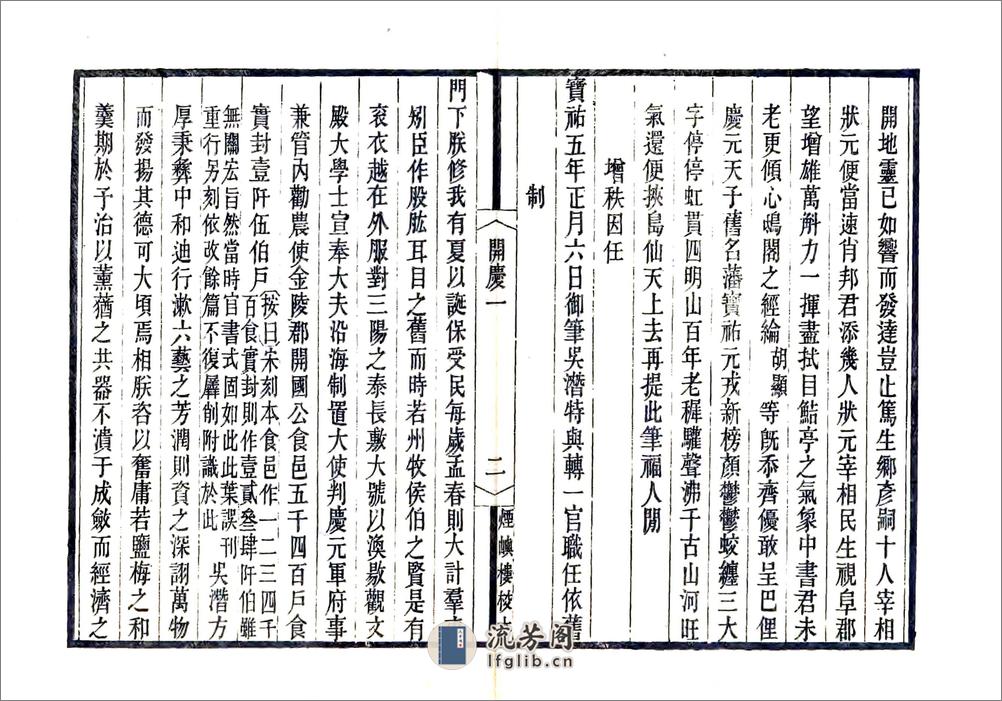 開地靈已如響而發達豈止篤生鄉彥嗣十人宰相
狀元便當速肖邦君添幾人狀元宰相民生視阜郡
望增雄萬斛力一揮盡拭目鮚亭之氣象中書君未
老更傾心鴟閣之經綸胡顯等旣忝齊優敢呈巴俚
慶元天子舊名藩寶祐元戎新榜顏鬱鬱蛟纏三大
字停停虹貫四明山百年老稺驩聲沸千古山河旺
氣還便挾島仙天上去再提此筆福人閒
增秩因任
寶祐五年正月六日御筆吳潛特與轉一官職任依舊
制
開慶一
二
煙嶼樓校
門下朕修我有夏以誕保受民每歲孟春則大計羣
矧臣作股肱耳目之舊而時若州牧侯伯之賢是有
衮衣越在外服對三陽之泰長敷大號以渙敭觀文
殿大學士宣奉大夫沿海制置大使判慶元軍府事
兼管內勸農使金陵郡開國公食邑五千四百戶食
實封壹阡伍伯戶按曰宋刻本食邑作一二三四千
百食實封則作壹貳叄肆阡伯雖
無關宏旨然當時官書式固如此此葉誤刊
重行另刻依改餘篇不復羼削附識於此吳潛方
厚秉彝中和迪行漱六藝之芳潤則資之深詡萬物
而發揚其德可大頃焉相朕咨以奮庸若鹽梅之和
羹期於予治以薰蕕之共器不潰于成斂而經濟之
流芳阁
lfglib.cn